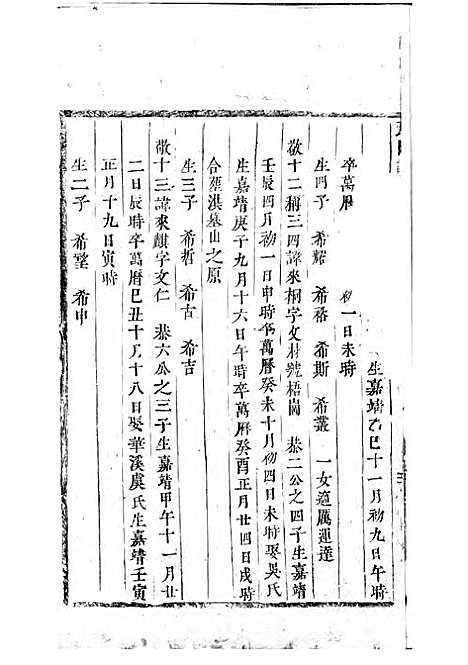 生嘉靖乙巳十一月初九日午時
卒萬曆 初一日未時
生四子 希耀 希蓓 希斯 希叢 一女適厲運達
敬十二稱三四諱來桐字文材號梧岡 恭二公之四子生嘉靖
壬辰四月初一日申時卒萬曆癸未十月初四日未時娶吳氏
生嘉靖庚子九月十六日午時卒萬曆癸酉正月廿四日戌時
合塟淇墓山之原
生三子 希哲 希古 希吉
敬十三諱來麒字文仁 恭六公之三子生嘉靖甲午十一月廿
二日辰時卒萬曆己丑十月十八日娶華溪虞氏生嘉靖壬寅
正月十九日寅時
生二子 希堅 希申